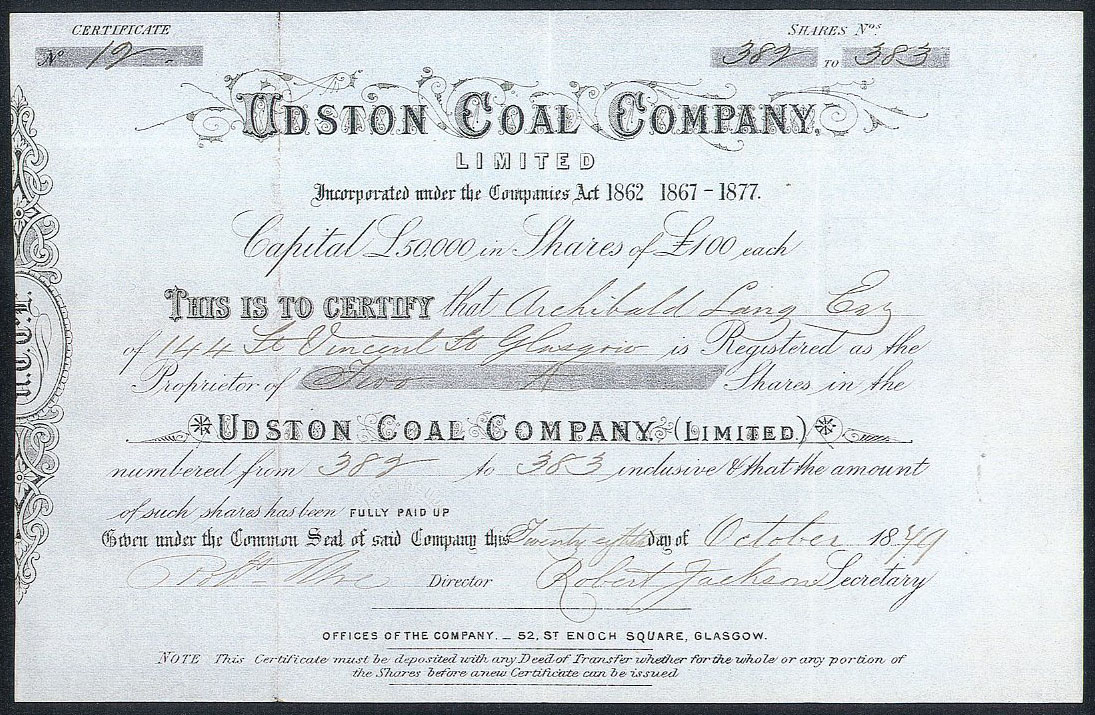 CERTIFICATE
No 12
SHARES Nos.
382 TO 383
UDSTON COAL COMPANY,
LIMITED
Incorporated under the Companies Act 1862 1867 - 1877.
Capital £50,000 in Shares of £100 each
THIS IS TO CERTIFY that Archibald Lang Esq
of 144 St Vincent St Glasgow is Registered as the
Proprietor of Two Shares in the
UDSTON COAL COMPANY. (LIMITED.)
numbered from 382 to 383 inclusive & that the amount
of such shares has been FULLY PAID UP
Given under the Common Seal of said Company this Twenty day of October 1879
Robt Director Robert Jackson Secretary
OFFICES OF THE COMPANY. _ 52, ST ENOCH SQUARE, GLASGOW.
NOTE This Certificate must be deposited with any Deed of Transfer whether for the whole or any portion of
the Shares before a new Certificate can be issued